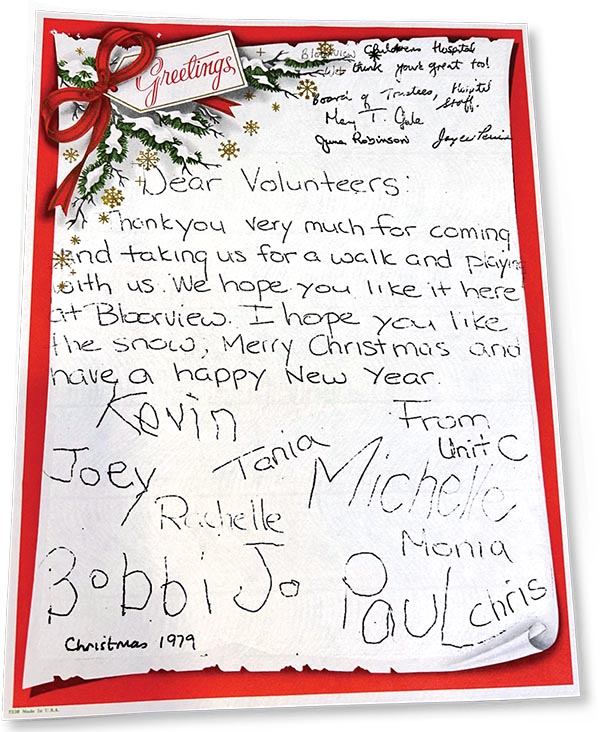 Greetings
Bloorview Childrens Hospital
think your great too!
Board of Trustees, Hospital
Staff.
Mary T. Gale
June Robinson
Dear Volunteers:
Thankyou very much for coming
and taking us for a walk and playing
with us. We hope you like it here
at Bloorview. I hope you like
the snow, Merry Christmas and
have a happy New Year.
Kevin
From
Unit C
Joey
Tania
Michelle
Rachelle
Monia
Bobbi Jo
Paul
chris
Christmas 1979
Made in U.S.A.